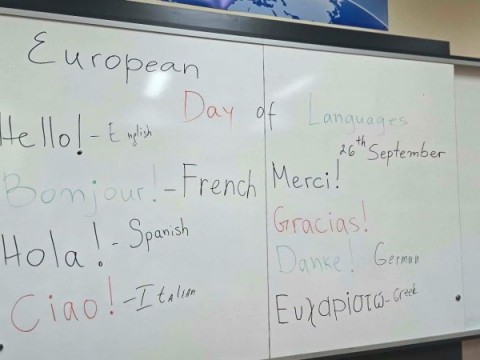 European
Day of Languages
26th September
Hello! - English
Bonjour! - French
Hola! - Spanish
Ciao! - Italian
Merci!
Gracias!
Danke! German
Ευχαρίστω - Greek